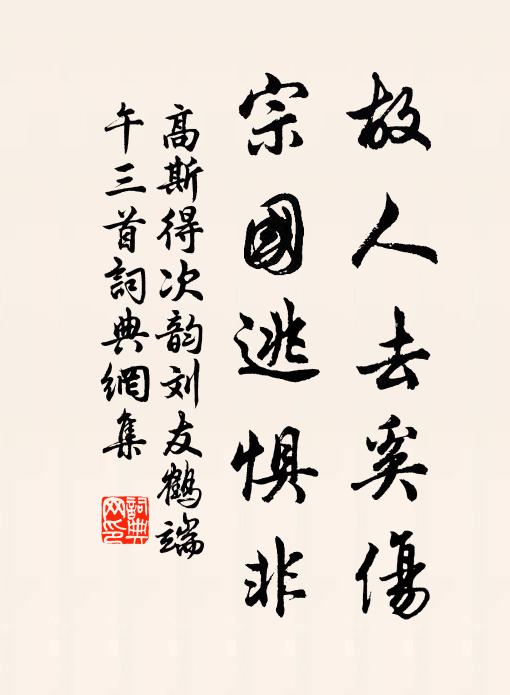 故人去奚傷
宗國逃惧非
高斯得次韵刘友鶴端
午三首詞典網集
詞典
网印